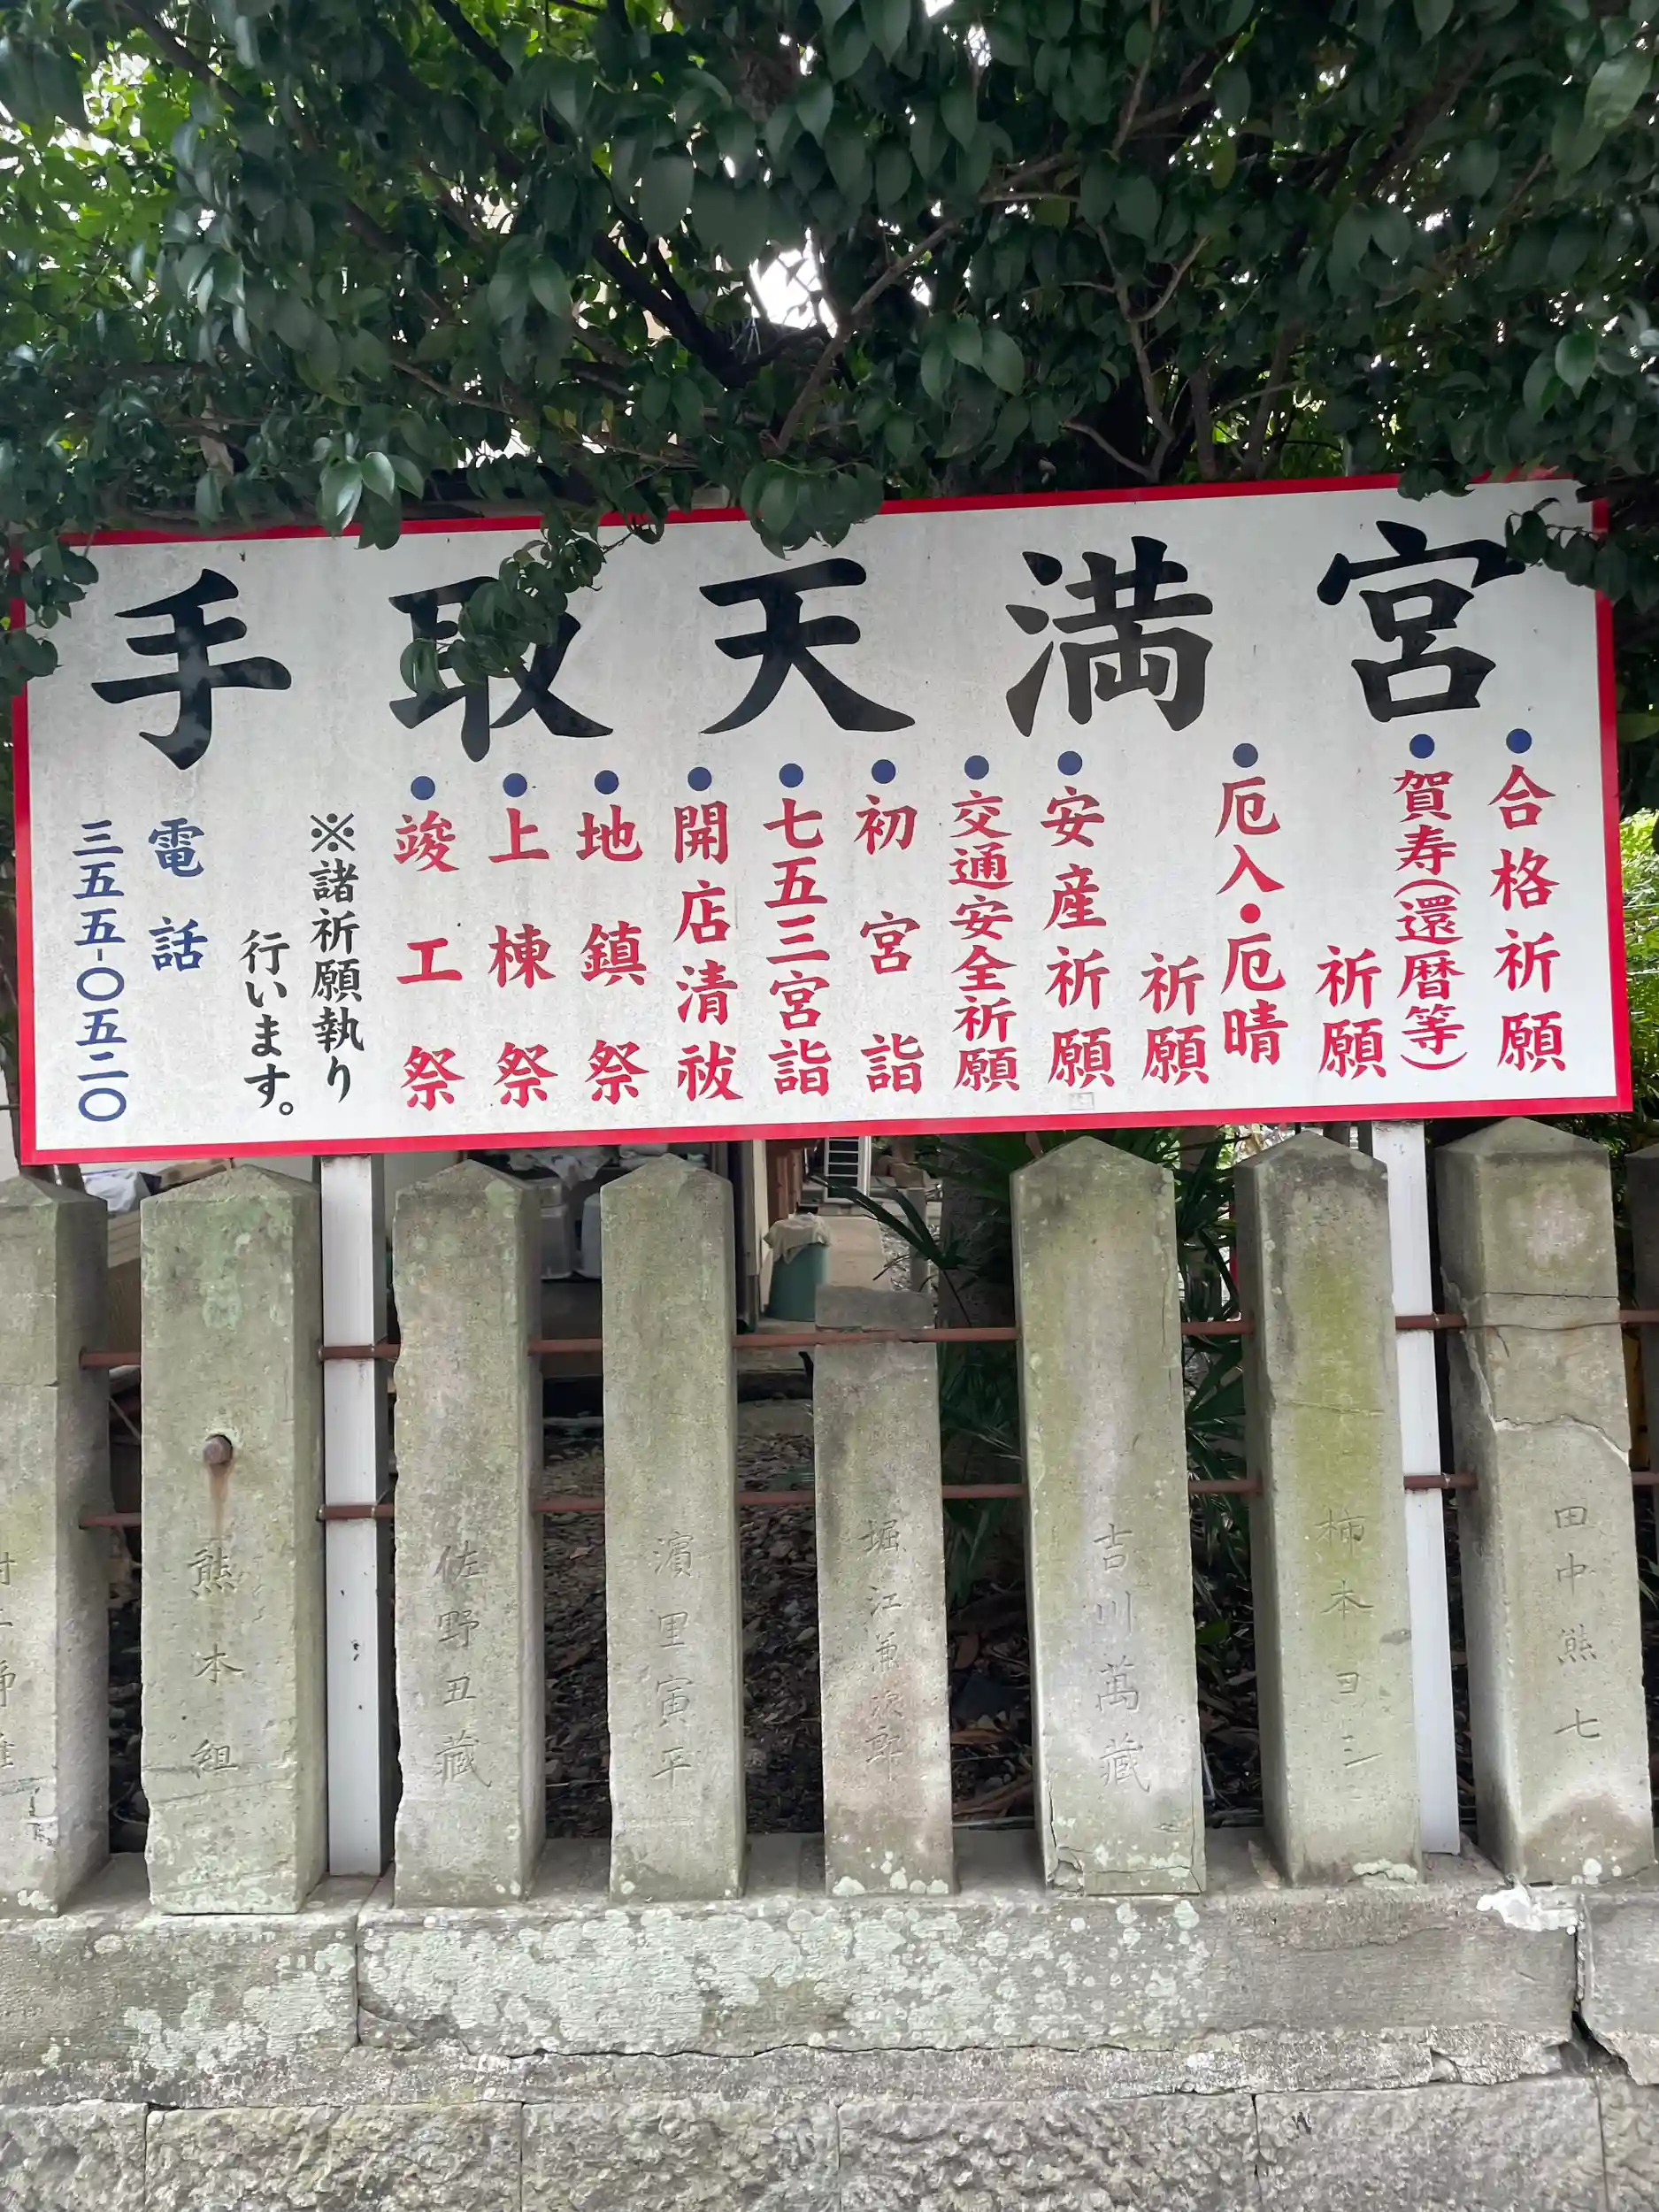 手取天満宮
●合格祈願
●賀寿(還暦等)
祈願
●厄入・厄晴
祈願
●安産祈願
●交通安全祈願
●初宮詣
●七五三宮詣
●開店清祓
●地鎮祭
●上棟祭
●竣工祭
※諸祈願執り
行います。
電話
三五五-〇五二〇
田中熊七
柿本ヨシ
吉川萬藏
堀江兼次郎
濵里寅平
佐野丑藏
熊本組